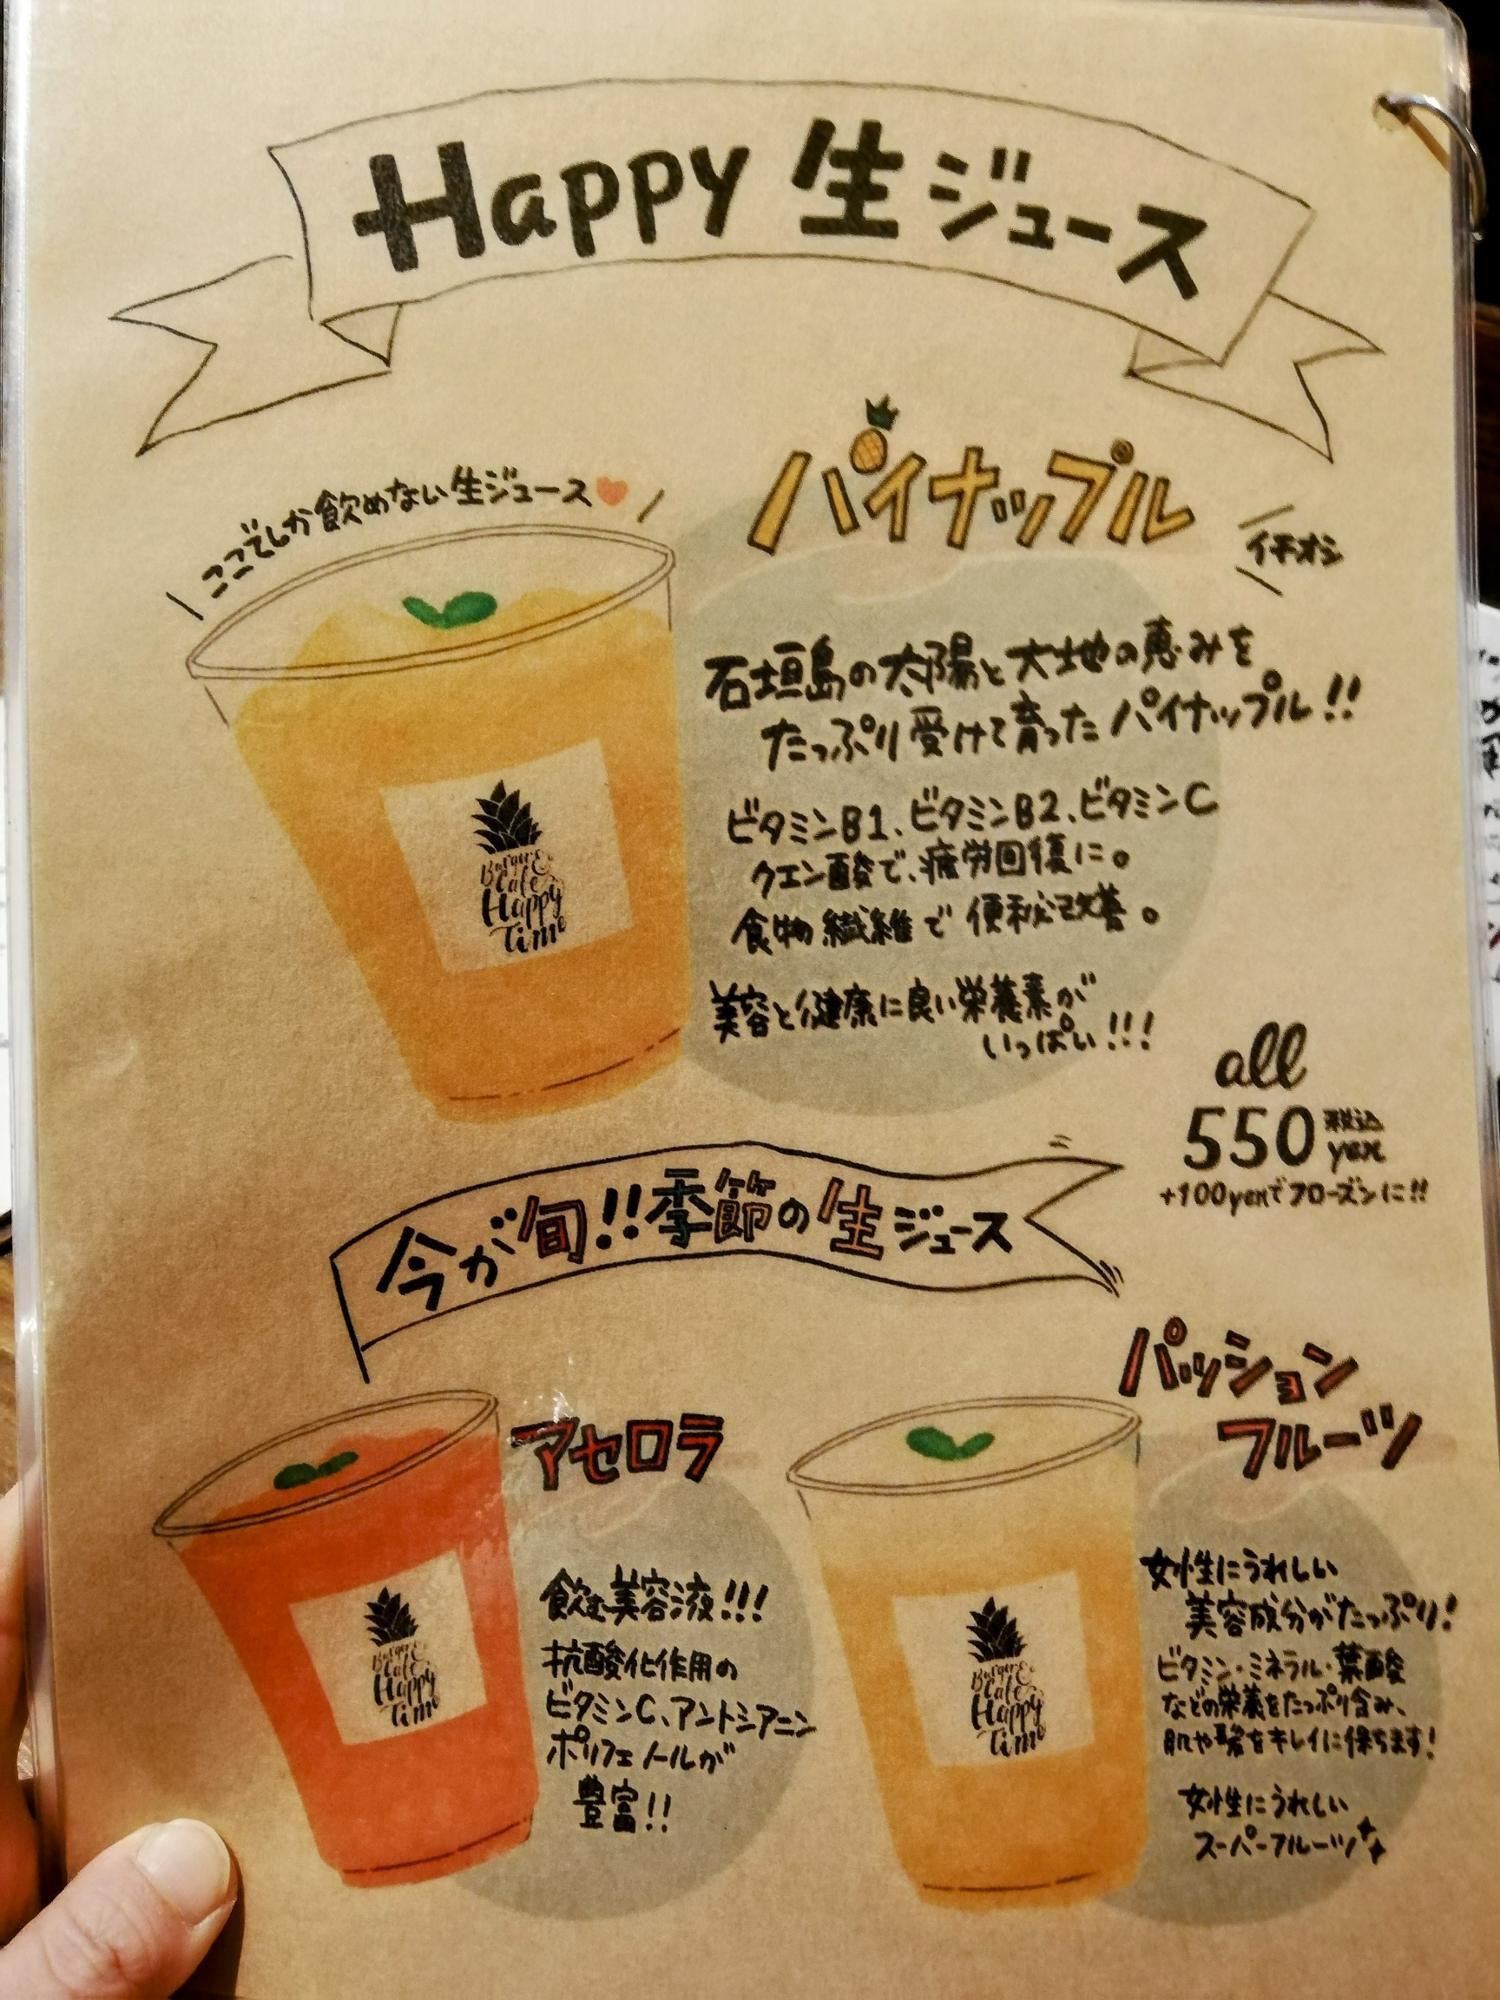 Happy 生ジュース
ここでしか飲めない生ジュース
パイナップル
イチオシ
石垣島の太陽と大地の恵みを
たっぷり受けて育ったパイナップル!!
ビタミンB1、ビタミンB2、ビタミンC
クエン酸で、疲労回復に。
食物繊維で便秘改善。
美容と健康に良い栄養素が
いっぱい!!!
Burger &
Cafe
Happy
Time
all
550 税込
yen
+100yenでフローズンに!!
今が旬!!季節の生ジュース
アセロラ
飲む美容液!!!
抗酸化作用の
ビタミンC、アントシアニン
ポリフェノールが
豊富!!
Burger &
Cafe
Happy
Time
パッション
フルーツ
女性にうれしい
美容成分がたっぷり!
ビタミン・ミネラル・葉酸
などの栄養をたっぷり含み、
肌や髪をキレイに保ちます!
女性にうれしい
スーパーフルーツ
Burger &
Cafe
Happy
Time